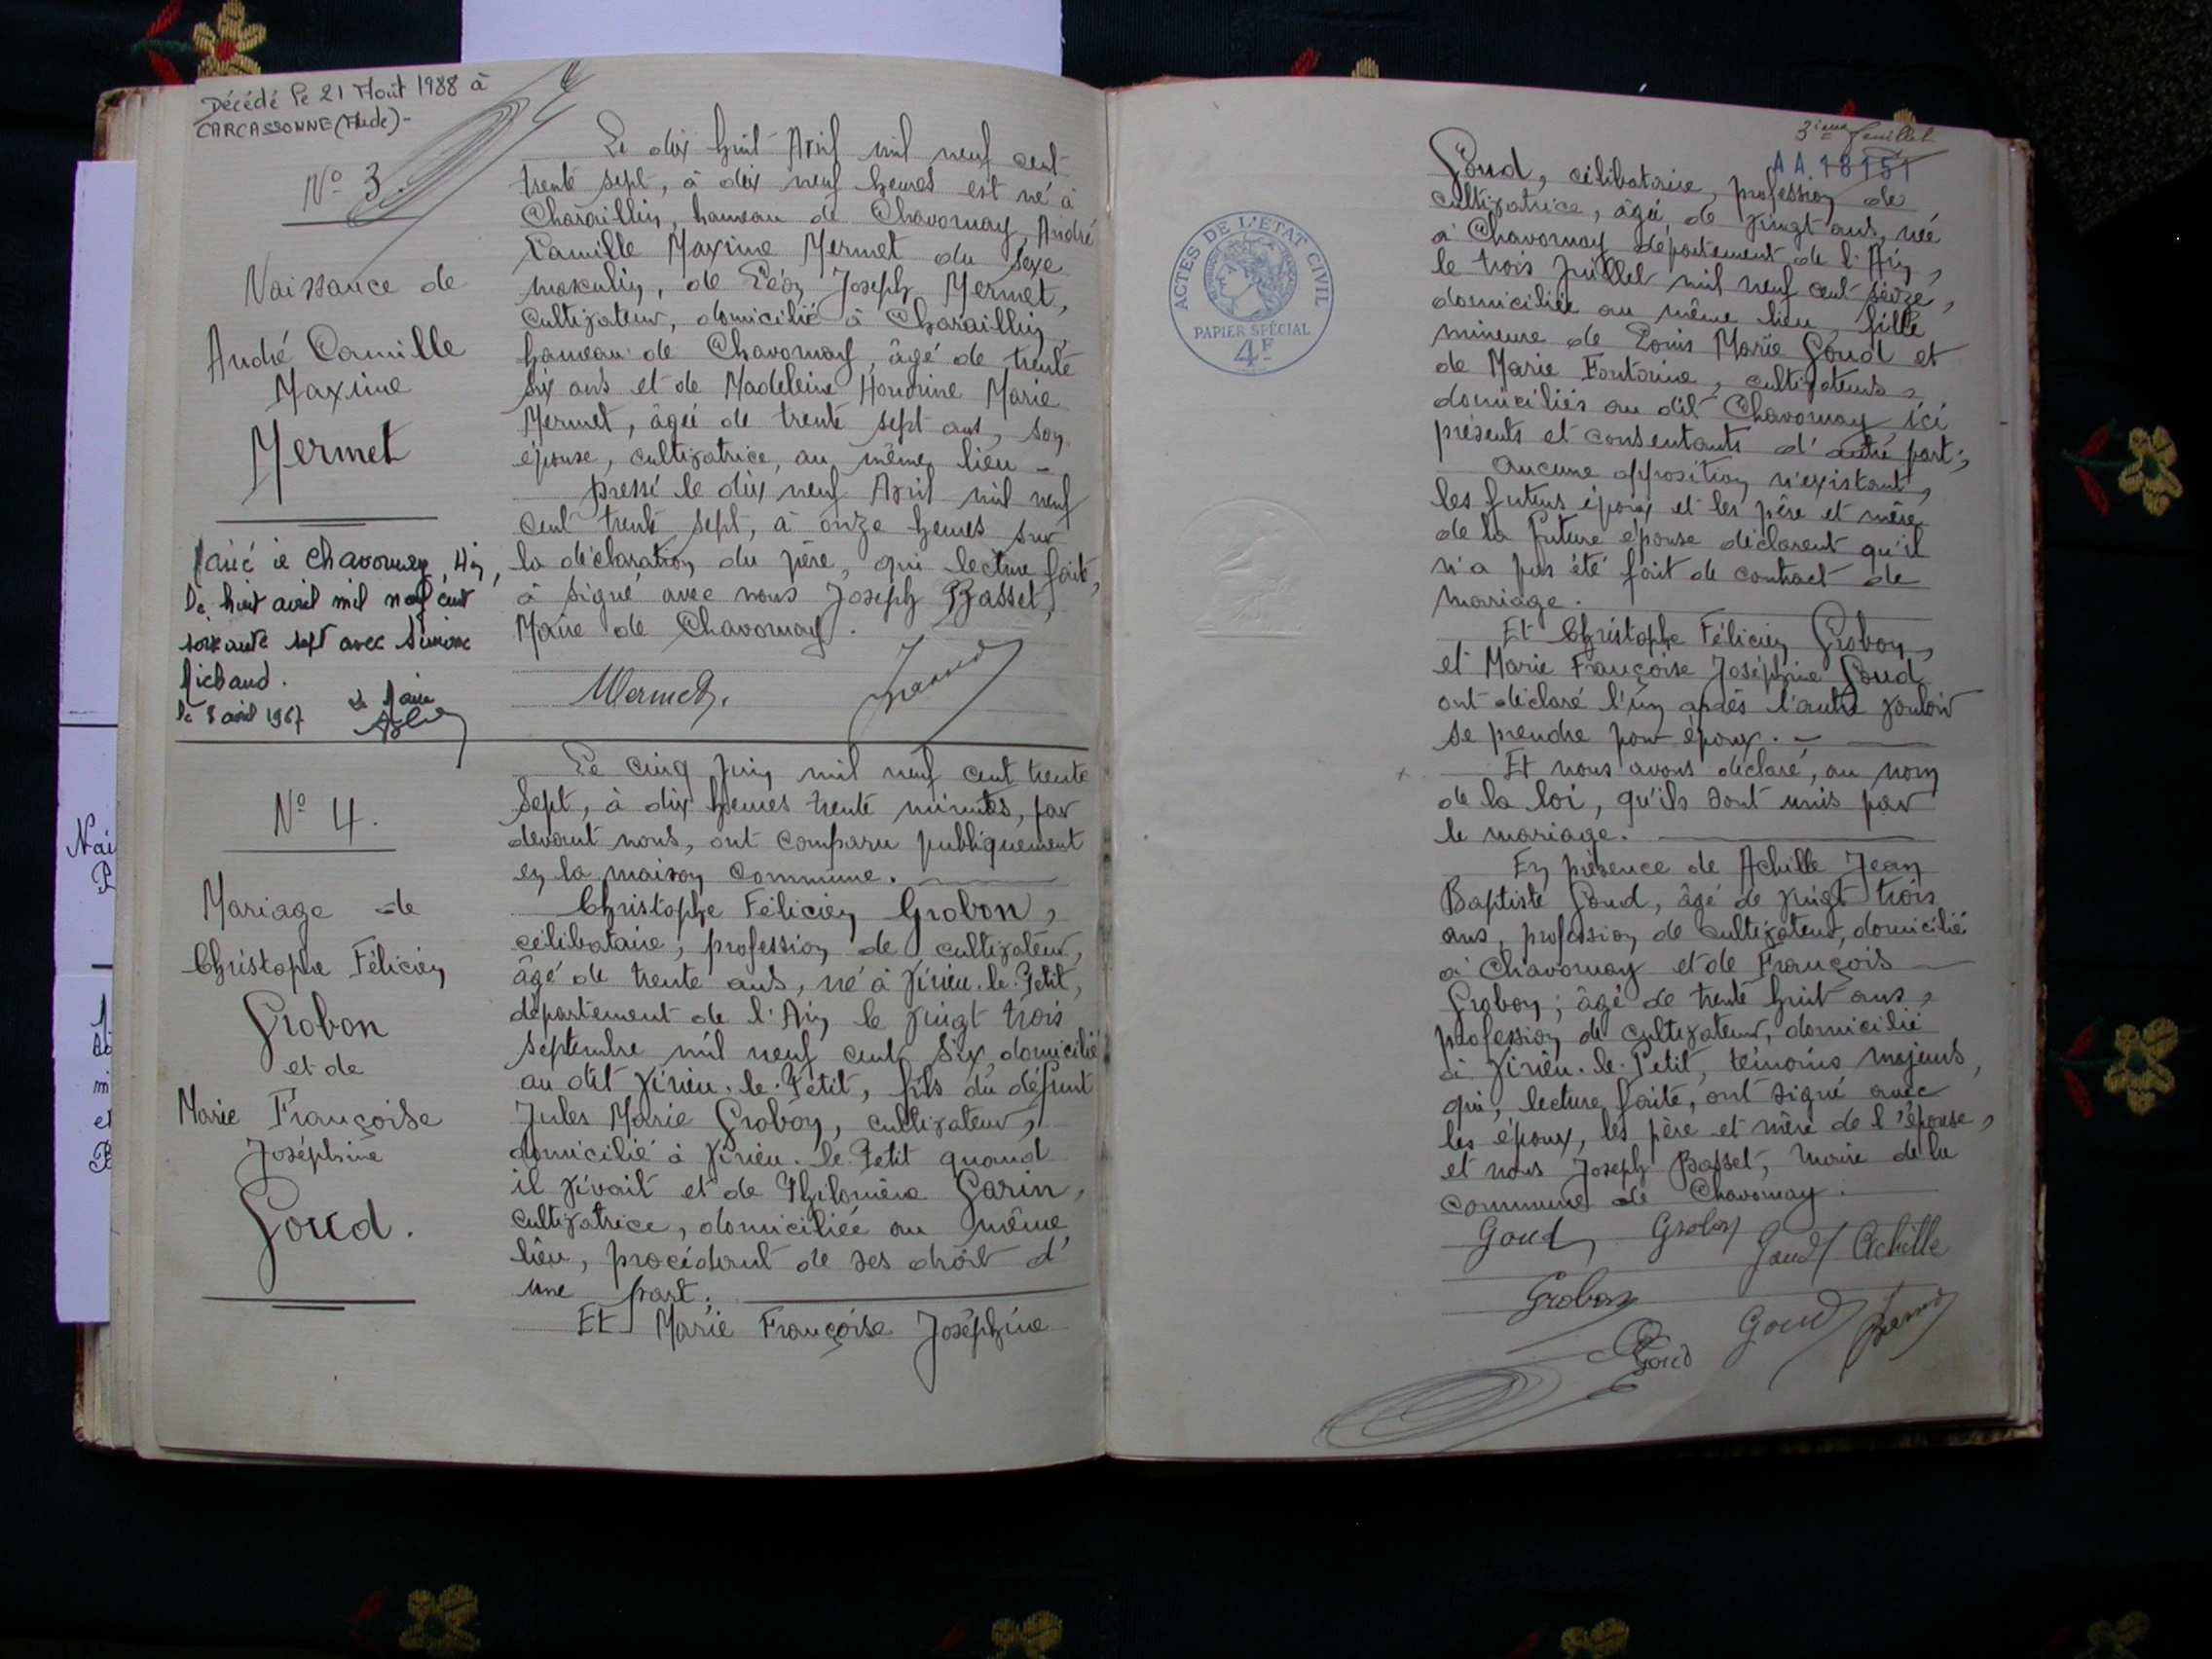 Décédé le 21 Août 1988 à
CARCASSONNE (Aude)-
N° 3.
Naissance de
André Camille
Maxime
Mermet
Marié à Chavornay, Ain,
le huit avril mil neuf cent
soixante sept avec Simone
Michaud.
le 8 avril 1967 Le Maire
Le dix huit Avril mil neuf cent
trente sept, à dix neuf heures est né à
Charaillin, hameau de Chavornay, André
Camille Maxime Mermet du sexe
masculin, de Léon Joseph Mermet,
cultivateur, domicilié à Charaillin,
hameau de Chavornay, âgé de trente
six ans et de Madeleine Honorine Marie
Mermet, âgée de trente sept ans, son
épouse, cultivatrice, au même lieu -
Dressé le dix neuf Avril mil neuf
cent trente sept, à onze heures sur
la déclaration du père, qui lecture faite,
à signé avec nous Joseph Basset,
Maire de Chavornay.
Mermet.
N° 4.
Mariage de
Christophe Félicien
Grobon
et de
Marie Françoise
Joséphine
Goud.
Le cinq Juin mil neuf cent trente
sept, à dix heures trente minutes, par
devant nous, ont comparu publiquement
en la maison commune.
Christophe Félicien Grobon,
célibataire, profession de cultivateur,
âgé de trente ans, né à Virieu-le-Petit,
département de l'Ain le vingt trois
septembre mil neuf cent six, domicilié
au dit Virieu-le-Petit, fils du défunt
Jules Marie Grobon, cultivateur,
domicilié à Virieu-le-Petit quand
il vivait et de Philomène Garin,
cultivatrice, domiciliée au même
lieu, procédant de ses droit d'
une part.
Et Marie Françoise Joséphine
3ième feuillet
AA.18151
ACTES DE L'ÉTAT CIVIL
PAPIER SPÉCIAL
4F
Goud, célibataire, profession de
cultivatrice, âgée de vingt ans, née
à Chavornay département de l'Ain,
le trois Juillet mil neuf cent seize,
domiciliée au même lieu, fille
mineure de Louis Marie Goud et
de Marie Fontaine, cultivateurs,
domiciliés au dit Chavornay, ici
présents et consentants d'autre part;
Aucune opposition n'existant,
les futurs époux et les père et mère
de la future épouse déclarent qu'il
n'a pas été fait de contract de
mariage.
Et Christophe Félicien Grobon,
et Marie Françoise Joséphine Goud
ont déclaré l'un après l'autre vouloir
se prendre pour époux. -
Et nous avons déclaré, au nom
de la loi, qu'ils sont unis par
le mariage.
En présence de Achille Jean
Baptiste Goud, âgé de vingt trois
ans, profession de cultivateur, domicilié
à Chavornay et de François
Grobon; âgé de trente huit ans,
profession de cultivateur, domicilié
à Virieu-le-Petit, témoins majeurs,
qui, lecture faite, ont signé avec
les époux, les père et mère de l'épouse,
et nous Joseph Basset, maire de la
commune de Chavornay.
Goud Grobon Goud Achille
Grobon
Goud Goud